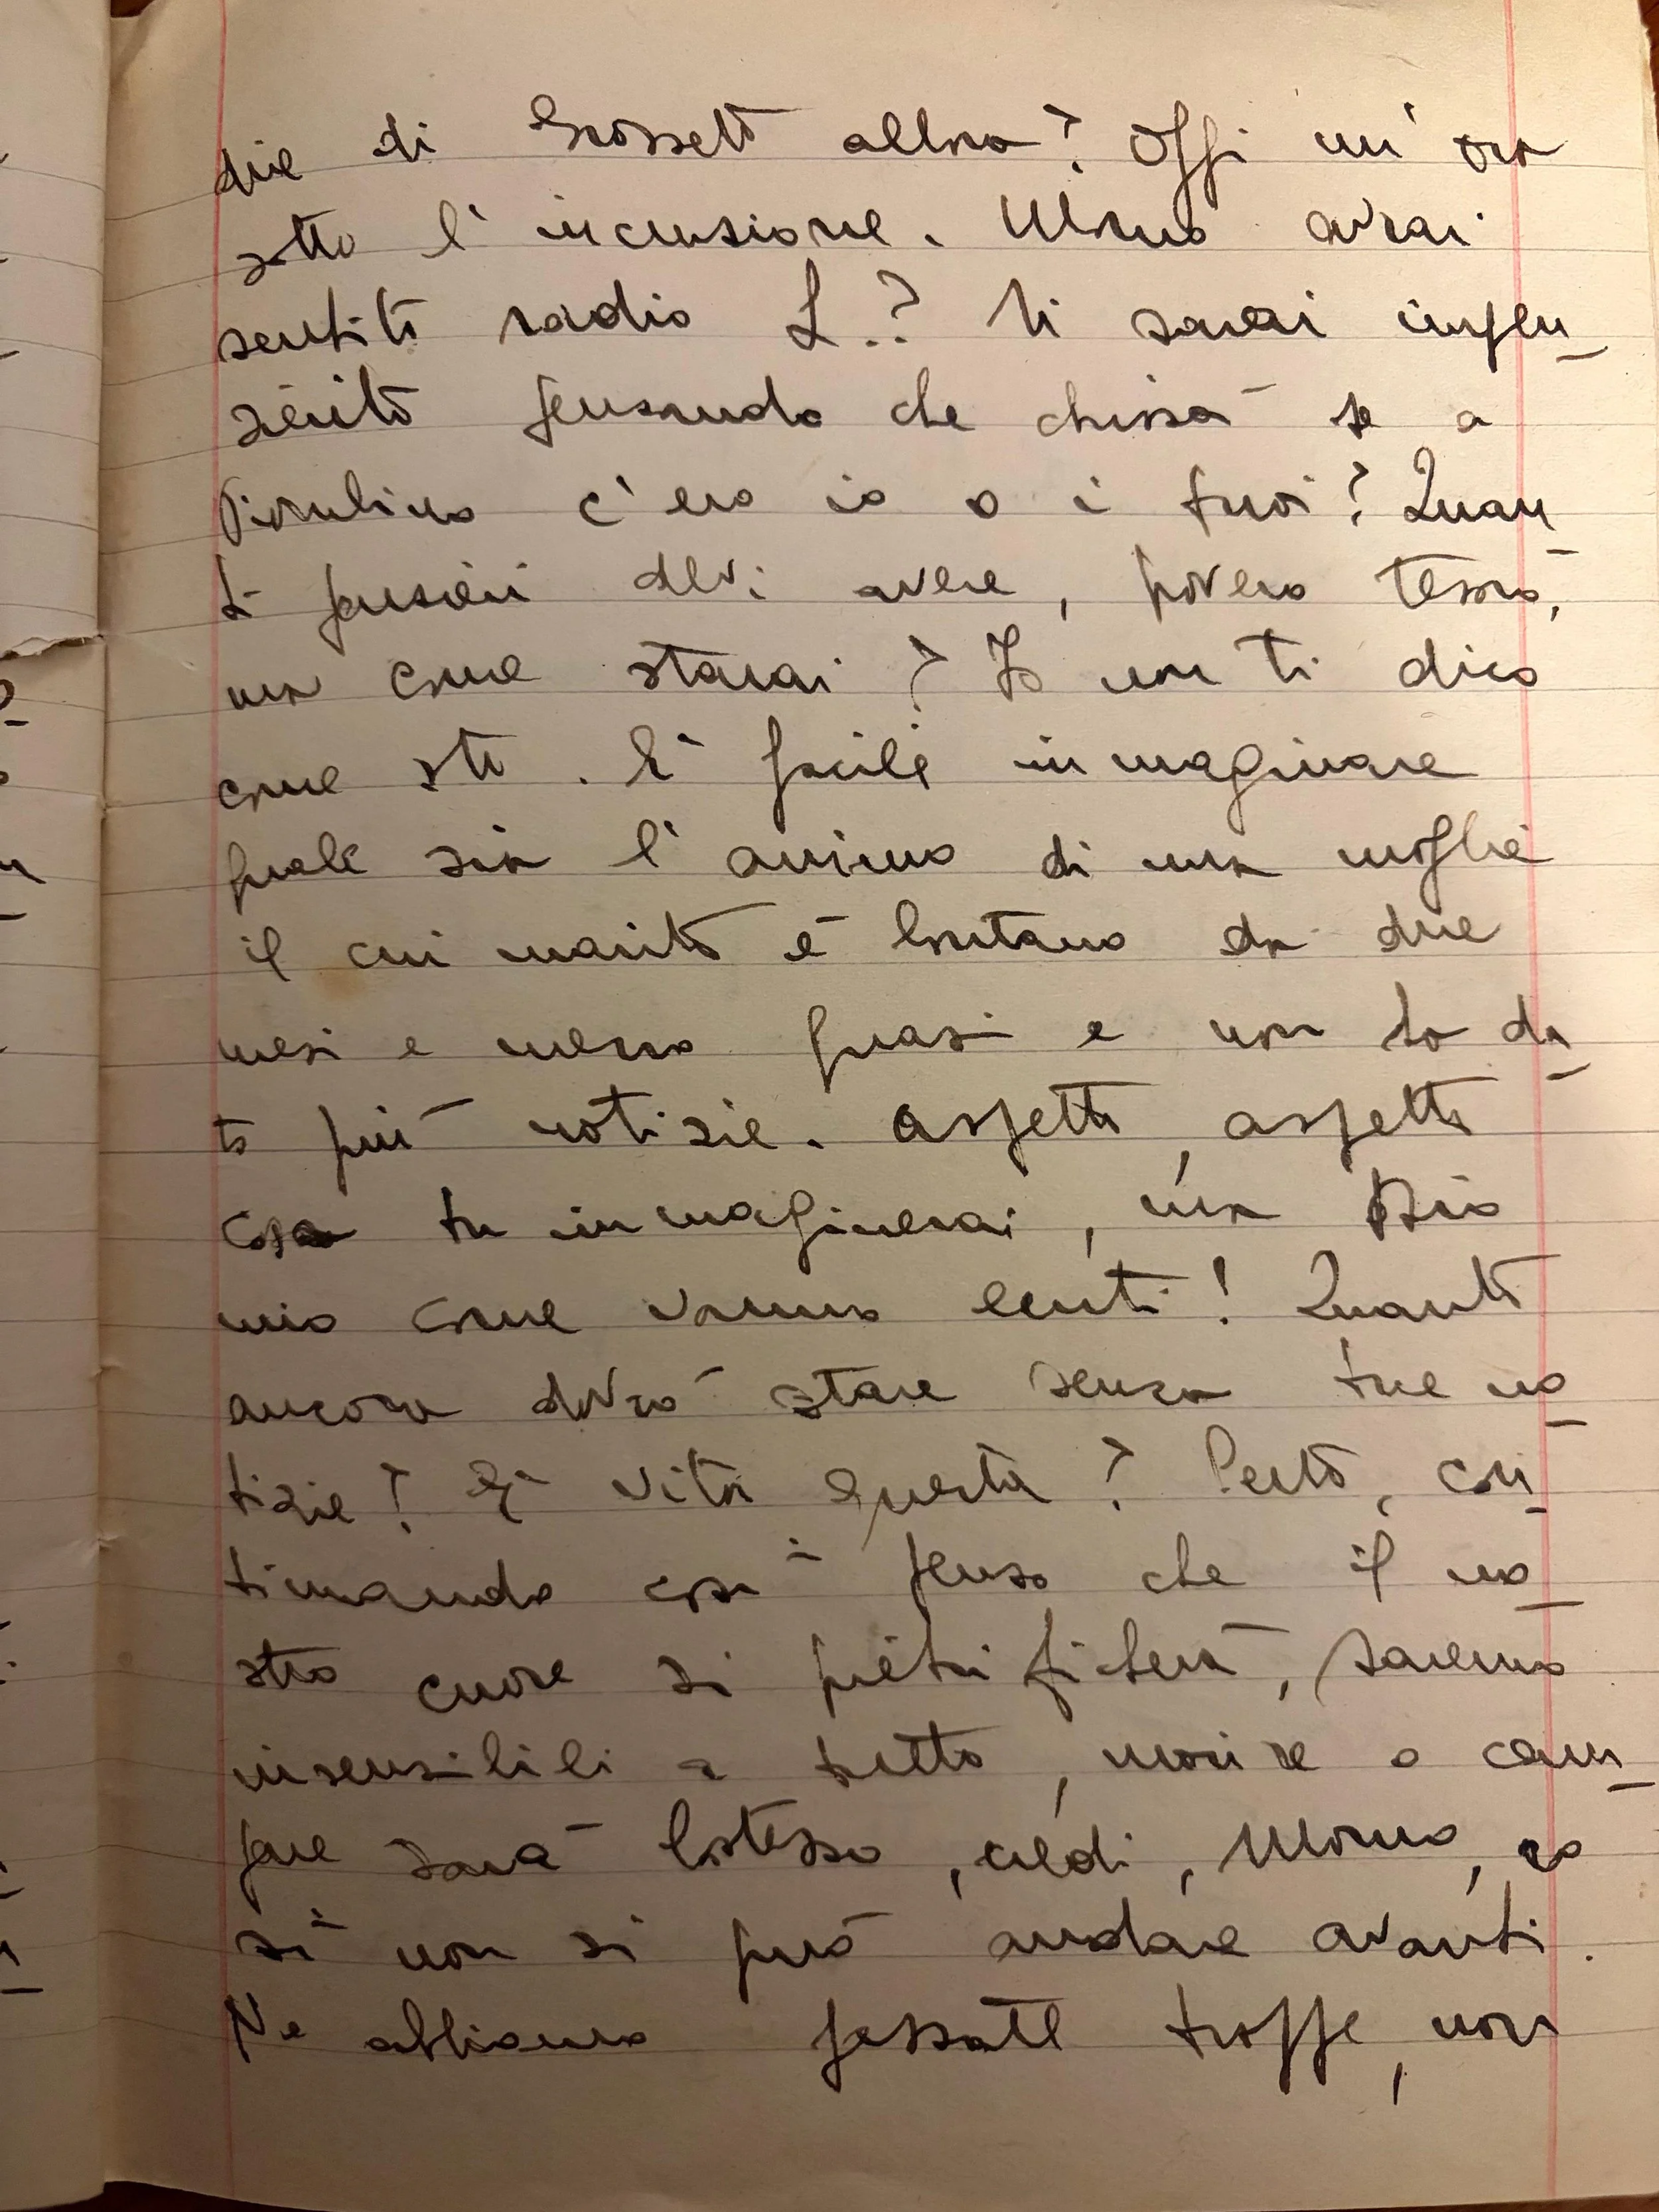 die di Grosseto allora? Oggi un'ora
sotto l'incursione. Momo avrai
sentito radio L.? Ti sarai impen
sierito pensando che chissà se a
c'ero io o i tuoi? Quan
ti pensieri devi avere, povero tesoro,
ma come starai? Io non ti dico
come sto. E' facile inmaginare
quale sia l'animo di una moglie
il cui marito è lontano da due
mesi e mezzo quasi e non ha da
to più notizie. Aspetto, aspetto
cosa tu inmaginerai, ma Dio
mio come vanno lenti! Quanto
ancora dovrò stare senza tue no
tizie? E' vita questa? Certo, con
tinuando così penso che il no
stro cuore si pietrificherà, saremo
insensibili a tutto, morire o cam
pare sarà lostesso, credi, Momo, co
sì non si può andare avanti.
Ne abbiamo passate troppe, non